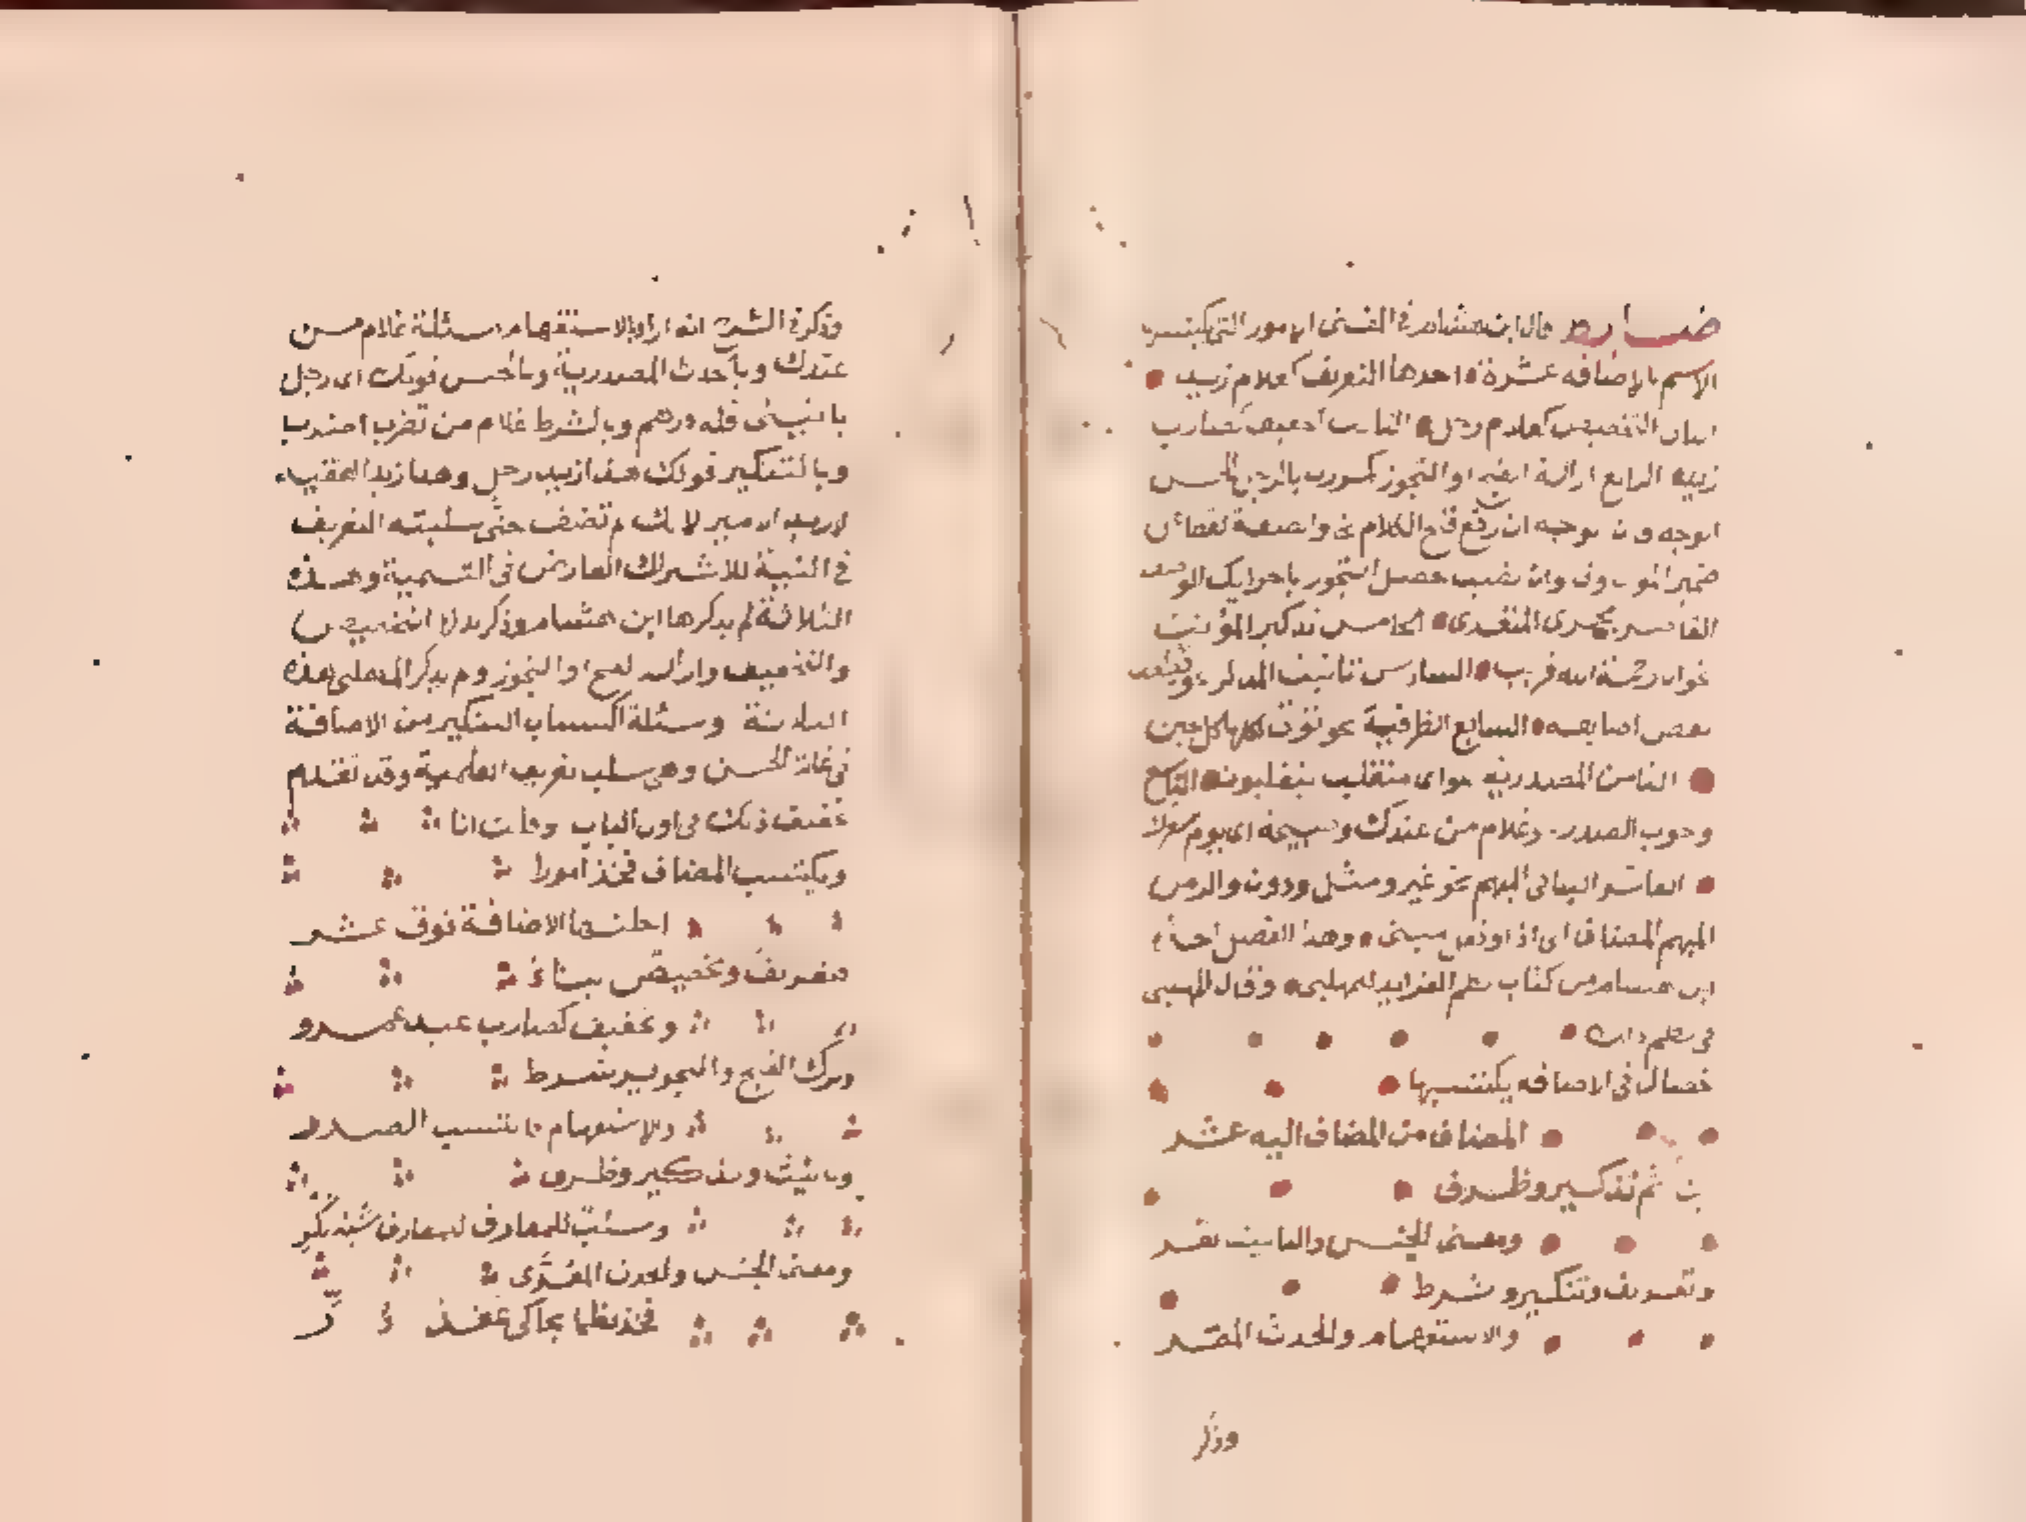 ضابط قال ابن هشام في المغنى الامور التي يكتسبها
الاسم بالاضافه عشرة احدها التعريف كغلام زيد
الثاني التخصيص كغلام رجل الثالث التخفيف كضارب
زيد الرابع ازالة القبح او التجوز كمررت بالرجل الحسن
الوجه فان الوجه ان رفع قبح الكلام لخلو الصفة لفظا عن
ضمير الموصوف وان نصب حصل التجوز باجرايك الوصف
القاصر مجرى المتعدى الخامس تذكير المؤنث
نحو ان رحمة الله قريب السادس تانيث المذكر نحو قطعت
بعض اصابعه السابع الظرفية نحو تؤتى اكلها كل حين
الثامن المصدريه نحو اى منقلب ينقلبون التاسع
وجوب الصدر نحو غلام من عندك وصبيحة اى يوم سفرك
العاشر البنا في المبهم نحو غير ومثل ودون والزمن
المبهم المضاف الى اذ او فعل مبنى وهذا الفصل اخذه
ابن هشام من كتاب نظم الفرايد للمهلبى وقال المهلبى
في نظم ذلك
خصال في الاضافه يكتسبها
المضاف من المضاف اليه عشر
بنا ثم تذكير وظرف
ومعنى الجنس والتانيث تقر
وتعريف وتنكير وشرط
والاستفهام والحدث المقر
وذكر
وذكر في الشرح انه اراد بالاستفهام مسئلة غلام من
عندك وبالحدث المصدرية وبالجنس قولك اى رجل
ياتينى فله درهم وبالشرط غلام من تضرب اضرب
وبالتنكير قولك هذا زيد رجل وهذا زيد الفقيه
لا زيد الامير لانك لم تضف حتى سلبته التعريف
في النية للاشتراك العارض في التسمية وهذه
الثلاثة لم يذكرها ابن هشام وذكر بدلا التخصيص
والتخفيف وازالة القبح او التجوز ولم يذكر المهلبى هذه
الثلاثة ومسئلة اكتساب التنكير من الاضافة
في غاية الحسن وهي سلب تعريف العلمية وقد تقدم
تحقيق ذلك في اول الباب وقلت انا
ويكتسب المضاف فخذ امورا
احلتها الاضافة فوق عشر
فتعريف وتخصيص بناء
وتخفيف كضارب عبد عمرو
وترك القبح والتجويز شرط
والاستفهام فانتسب الصدر
وتانيث وتذكير وظرف
وسلب للمعارف
ومعنى الجنس والحدث المعزى
فخذ نظما يحاكى عقد در